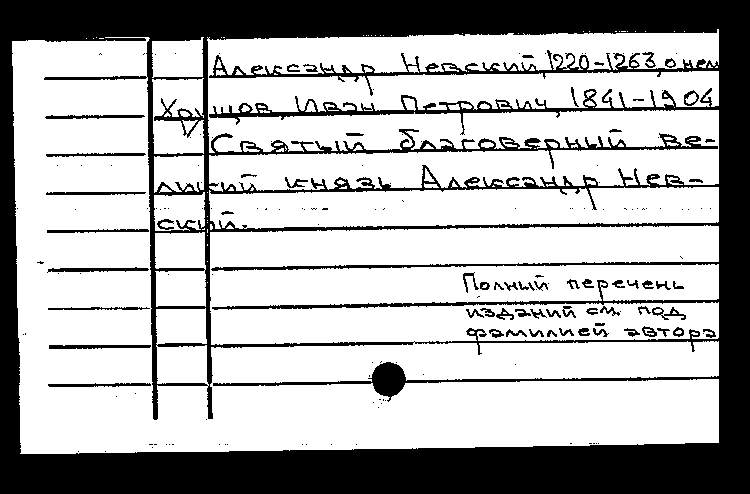 Александр Невский, 1220-1263, о нем
Хрущов, Иван Петрович, 1841-1904
Святый благоверный ве-
ликий князь Александр Нев-
ский.
Полный перечень
изданий см. под
фамилией автора